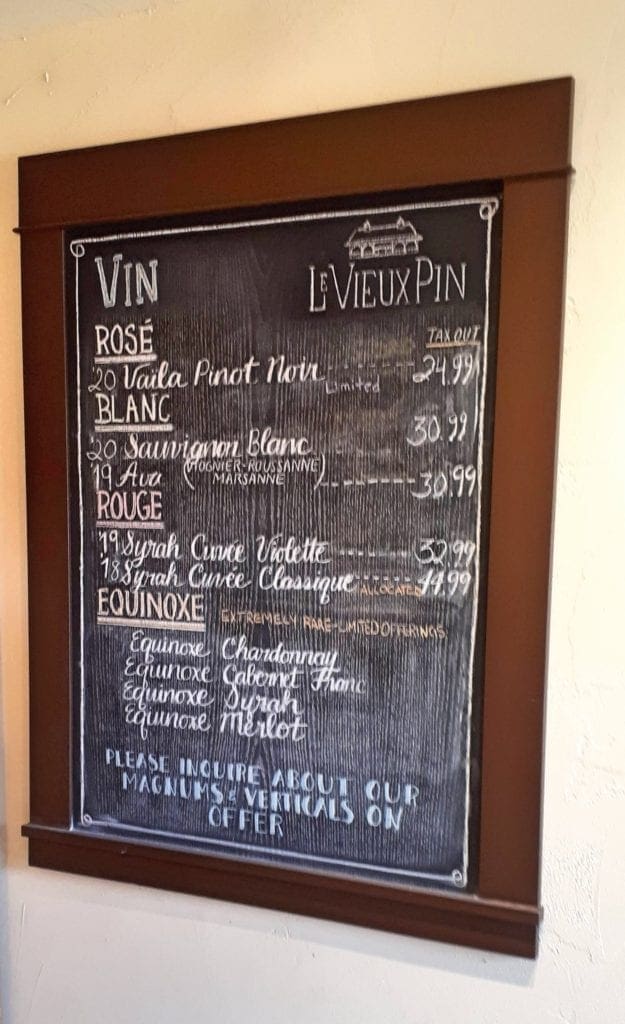 VIN
LE VIEUX PIN
ROSÉ
TAX OUT
'20 Vaïla Pinot Noir Limited 24.99
BLANC
'20 Sauvignon Blanc 30.99
'19 Ava (VIOGNIER-ROUSSANNE
MARSANNE) 30.99
ROUGE
'19 Syrah Cuvée Violette 32.99
'18 Syrah Cuvée Classique ALLOCATED 44.99
EQUINOXE EXTREMELY RARE-LIMITED OFFERINGS
Equinoxe Chardonnay
Equinoxe Cabernet Franc
Equinoxe Syrah
Equinoxe Merlot
PLEASE INQUIRE ABOUT OUR
MAGNUMS & VERTICALS ON
OFFER